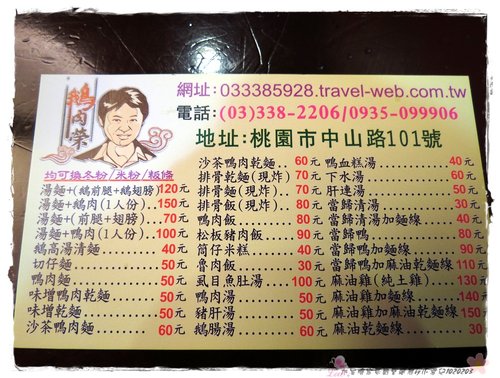 鵝肉榮
網址:033385928.travel-web.com.tw
電話:(03)338-2206/0935-099906
地址:桃園市中山路101號
均可換冬粉/米粉/粄條
湯麵+(鵝前腿+鵝翅膀)120元
湯麵+鵝肉(1人份)...150元
湯麵+(前腿+翅膀)....70元
湯麵+鴨肉(1人份)...100元
鵝高湯清麵............40元
切仔麵................50元
鴨肉麵................50元
味增鴨肉乾麵..........50元
味增乾麵..............50元
沙茶鴨肉麵............60元
沙茶鴨肉乾麵..60元
排骨乾麵(現炸)70元
排骨麵(現炸)..70元
排骨飯(現炸)..80元
鴨肉飯........80元
松板豬肉飯....90元
筒仔米糕......40元
魯肉飯........30元
虱目魚肚湯...100元
鴨肉湯........50元
豬肝湯........50元
鵝腸湯........60元
鴨血糕湯........40元
下水湯..........60元
肝連湯..........50元
當歸清湯........30元
當歸清湯加麵線..40元
當歸鴨..........80元
當歸鴨加麵線....90元
當歸鴨加麻油乾麵線110元
麻油雞(純土雞)..130元
麻油雞加麵線....140元
麻油雞加乾麵線..150元
麻油乾麵線......30元